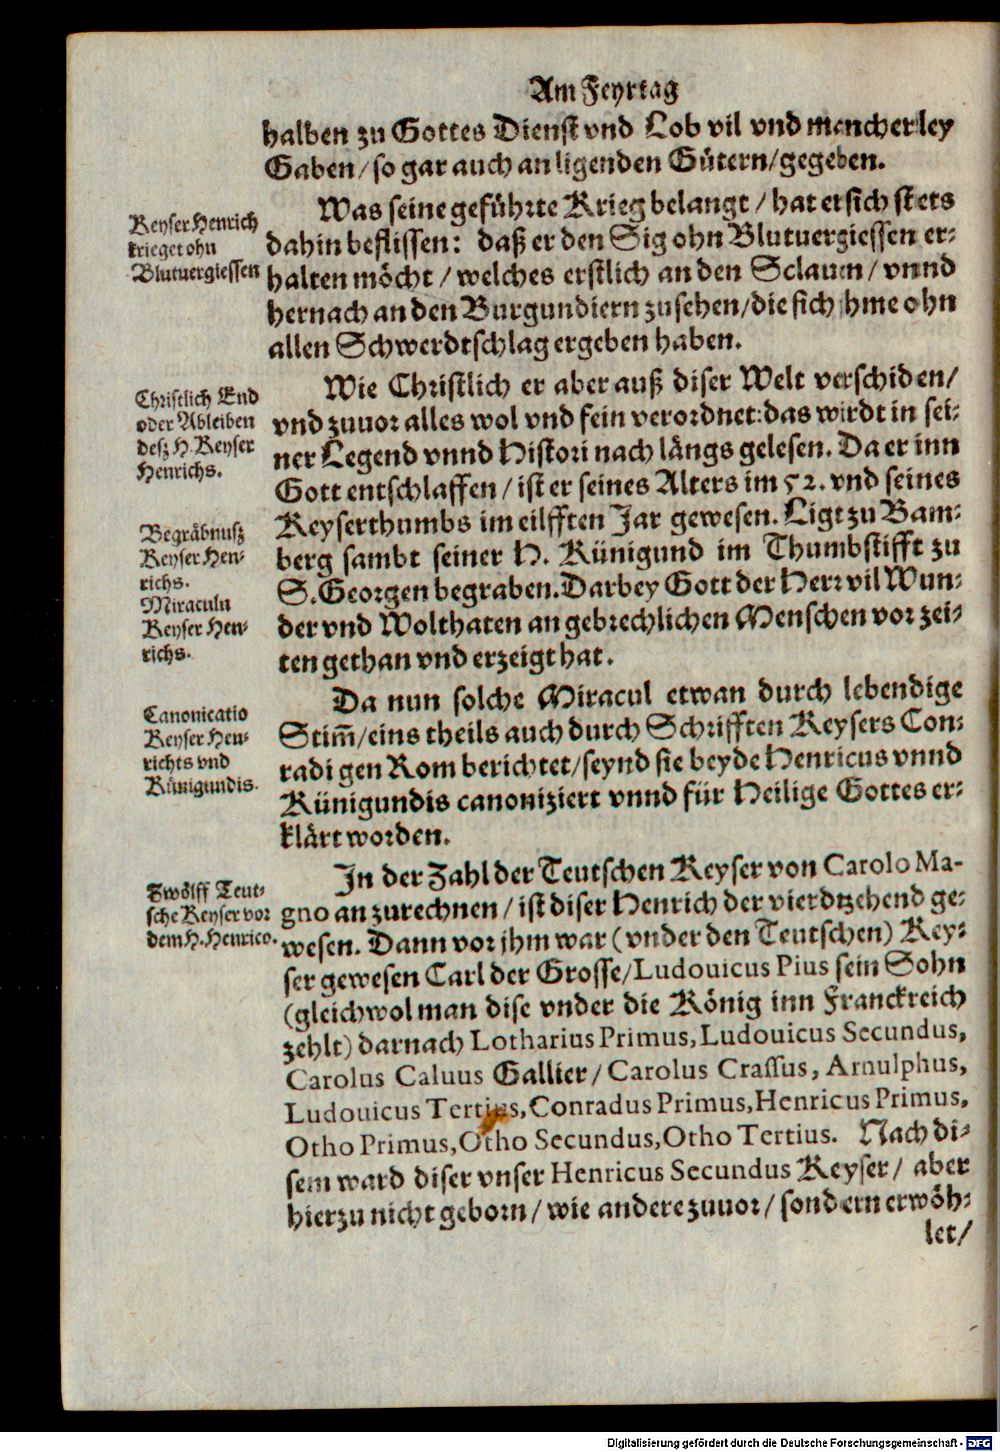 Am Feyrtag
halben zu Gottes Dienst vnd Lob vil vnd mancherley
Gaben / so gar auch an ligenden Gütern / gegeben.
Was seine geführte Krieg belangt / hat er sich stets
dahin beflissen: daß er den Sig ohn Blutuergiessen er-
halten möcht / welches erstlich an den Sclauen / vnnd
hernach an den Burgundiern zusehen / die sich jhme ohn
allen Schwerdtschlag ergeben haben.
Keyser Henrich
krieget ohn
Blutuergiessen
Wie Christlich er aber auß diser Welt verschiden /
vnd zuuor alles wol vnd fein verordnet: das wirdt in sei-
ner Legend vnnd Histori nach längs gelesen. Da er inn
Gott entschlaffen / ist er seines Alters im 52. vnd seines
Keyserthumbs im eilfften Jar gewesen. Ligt zu Bam-
berg sambt seiner H. Künigund im Thumbstifft zu
S. Georgen begraben. Darbey Gott der Herr vil Wun-
der vnd Wolthaten an gebrechlichen Menschen vor zei-
ten gethan vnd erzeigt hat.
Christlich End
oder Ableiben
desz H. Keyser
Henrichs.
Begräbnusz
Keyser Hen-
richs.
Miraculn
Keyser Hen-
richs.
Da nun solche Miracul etwan durch lebendige
Stim̃ / eins theils auch durch Schrifften Keysers Con-
radi gen Rom berichtet / seynd sie beyde Henricus vnnd
Künigundis canoniziert vnnd für Heilige Gottes er-
klärt worden.
Canonicatio
Keyser Hen-
richts vnd
Künigundis.
In der Zahl der Teutschen Keyser von Carolo Ma-
gno an zurechnen / ist diser Henrich der vierdtzehend ge-
wesen. Dann vor jhm war (vnder den Teutschen) Key-
ser gewesen Carl der Grosse / Ludouicus Pius sein Sohn
(gleichwol man dise vnder die König inn Franckreich
zehlt) darnach Lotharius Primus, Ludouicus Secundus,
Carolus Caluus Gallier / Carolus Crassus, Arnulphus,
Ludouicus Tertius, Conradus Primus, Henricus Primus,
Otho Primus, Otho Secundus, Otho Tertius. Nach di-
sem ward diser vnser Henricus Secundus Keyser / aber
hierzu nicht geborn / wie andere zuuor / sondern erwöh-
let /
Zwölff Teut-
sche Keyser vor
dem H. Henrico.
Digitalisierung gefördert durch die Deutsche Forschungsgemeinschaft - DFG